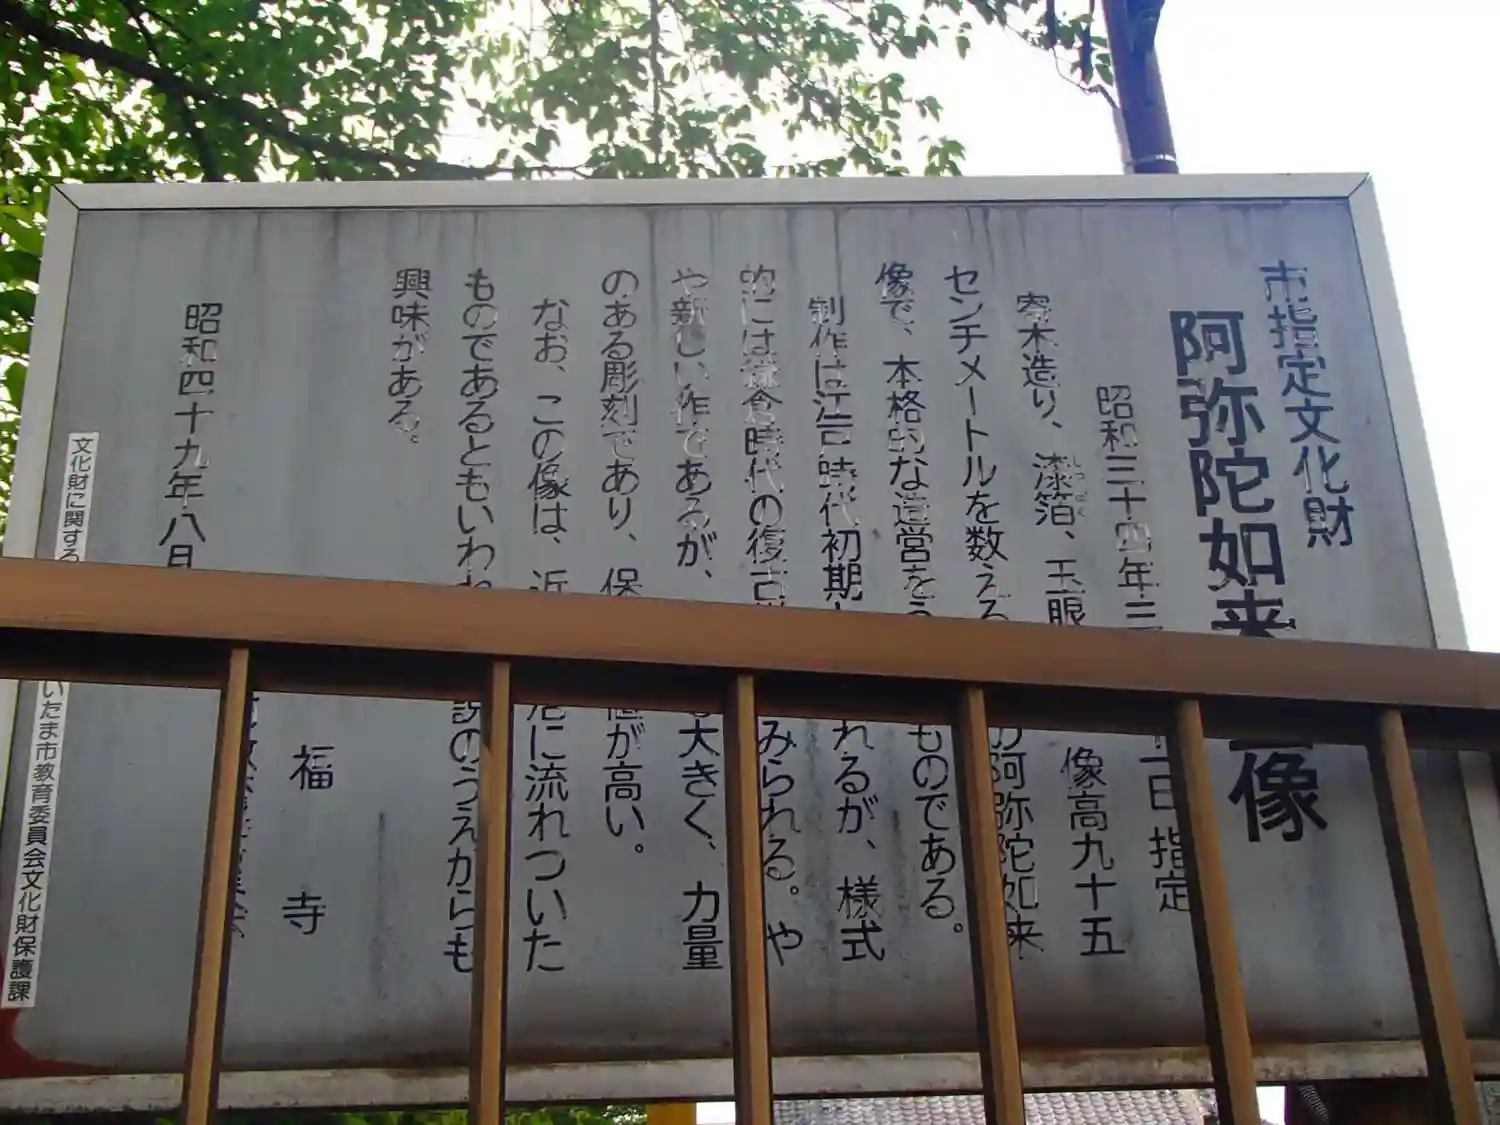 市指定文化財
阿弥陀如来 像
昭和三十四年三 一日指定
寄木造り、漆箔、玉眼 像高九十五
しっぱく
センチメートルを数える の阿弥陀如来
像で、本格的な造営を ものである。
制作は江戸時代初期 れるが、様式
的には鎌倉時代の復古 みられる。や
や新しい作であるが、 大きく、力量
のある彫刻であり、保 値が高い。
なお、この像は、近 に流れついた
ものであるともいわれ 説のうえからも
興味がある。
福寺
昭和四十九年八月
文化財に関する いたま市教育委員会文化財保護課